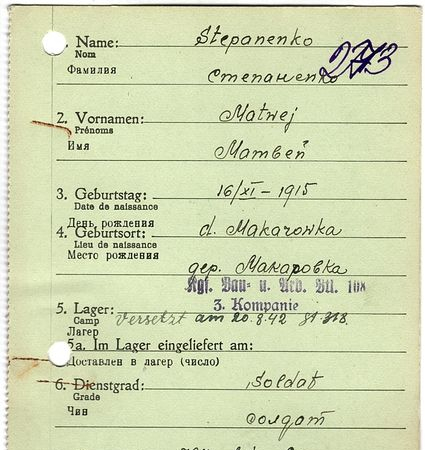 1. Name: Stepanenko
Nom
273
Фамилия Степаненко
2. Vornamen: Matwej
Prénoms
Имя Матвей
3. Geburtstag: 16/XI – 1915
Date de naissance
День рождения
4. Geburtsort: d. Makarowka
Lieu de naissance
Место рождения
дер. Макаровка
Kgf. Bau- u. Arb. Btl. 108
3. Kompanie
5. Lager: versetzt am 20.8.42
Camp
Лагерь
5a. Im Lager eingeliefert am:
Доставлен в лагер (число)
6. Dienstgrad: Soldat
Grade
Чин солдат